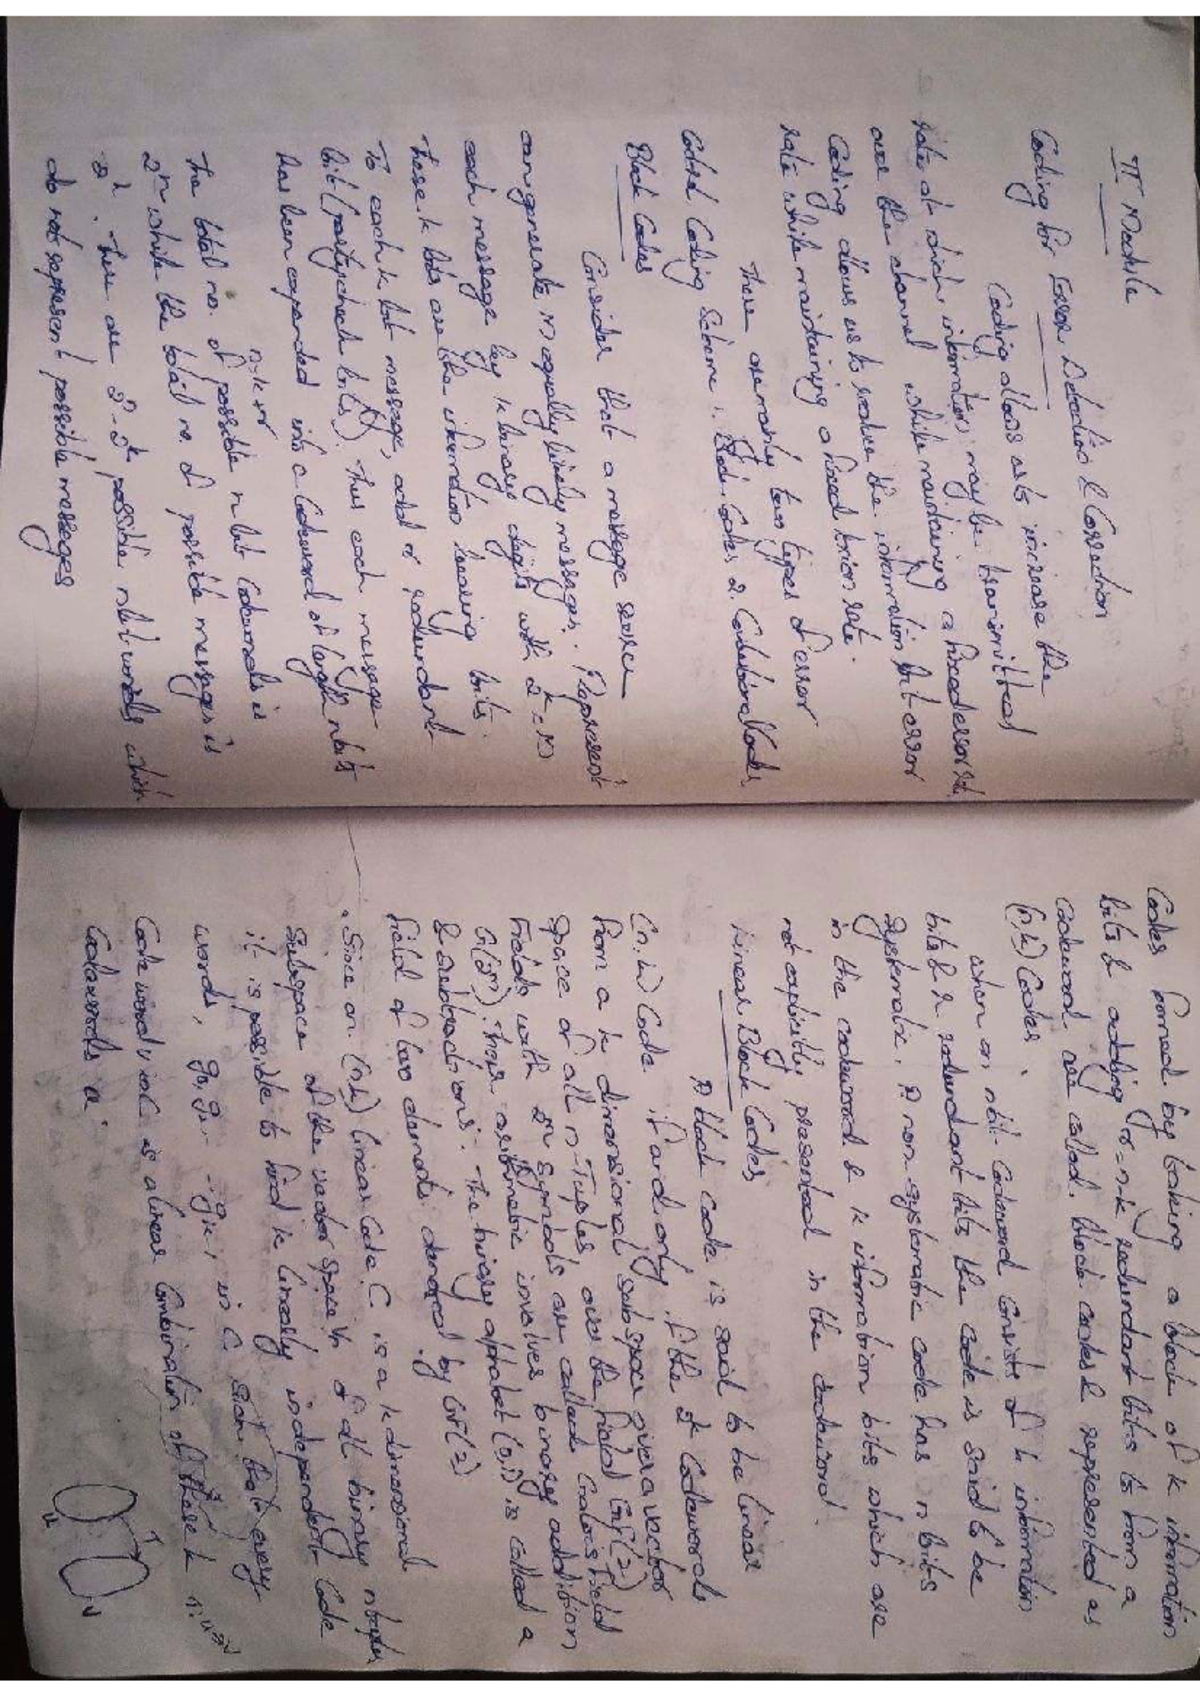 II Module
Coding for Error Detection & Correction
Coding allows us to increase the
rate at which information may be transmitted
over the channel while maintaining a fixed error rate.
Coding allows us to reduce the information bit error
rate while maintaining a fixed trion rate.
There are mainly two types of error
Control Coding Scheme 1. Block Codes 2. Convolutional Codes
Block Codes
Consider that a message source
can generate M equally likely messages. Represent
each message by k binary digits with 2^k = M
These k bits are the information bearing bits.
To each k bit message, add r redundant
bit (parity check bits). Thus each message
has been expanded into a Codeword of length n bits
n = k + r
The total no. of possible n bit Codewords is
2^n while the total no. of possible messages is
2^k. There are 2^n - 2^k possible n bit words which
do not represent possible messages
Codes formed by taking a block of k information
bits & adding r = n-k redundant bits to from a
Codeword are called block codes & represented as
(n,k) Codes.
When an n bit Codeword Consists of k information
bits & r redundant bits the code is said to be
Systematic. A non-systematic code has n bits
in the codeword & k information bits which are
not explicitly presented in the codeword.
Linear Block Codes
A block code is said to be linear
(n,k) Code if and only if the 2^k Codewords
from a k dimensional subspace given a vector
Space of all n-Tuples over the field GF(2)
Fields with 2^m symbols are called Galois field
G(2^m). Their arithmatic involves binary addition
& subtractions. The binary alphabet (0,1) is called a
field of two elements denoted by GF(2)
. Since an (n,k) linear Code C is a k dimensional
Subspace of the vector space Vn of all binary n tuples
it is possible to find k linearly independent Code
words, g0, g1 - - gk-1 in C such that every
Code word v in C is a linear Combination of these k
Codewords
u v